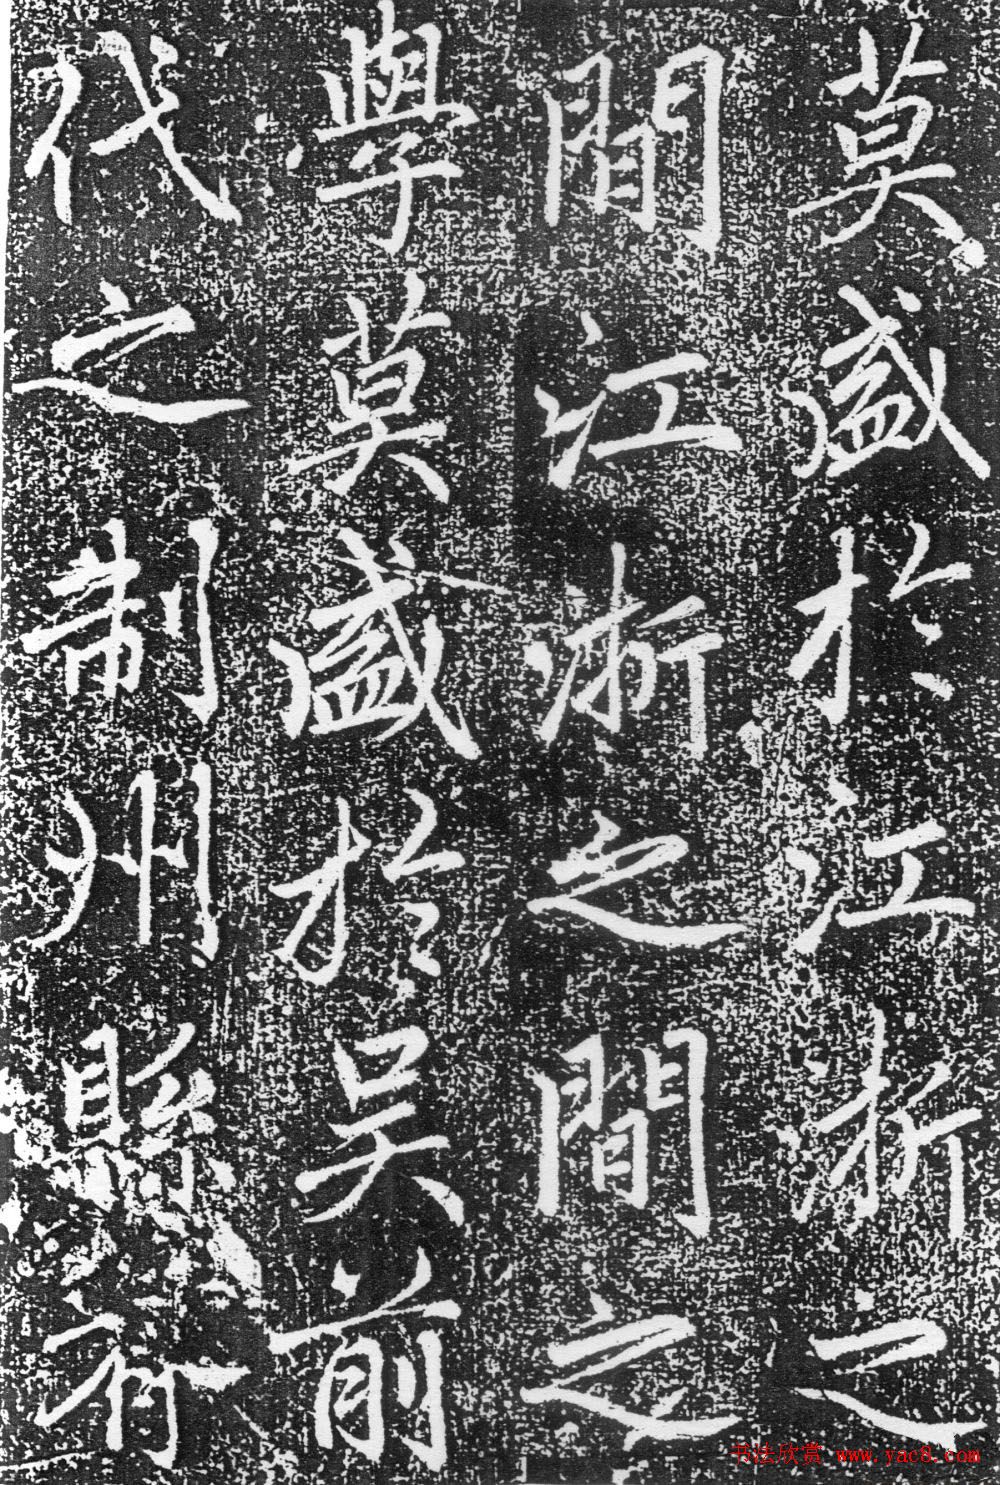 莫盛於江浙之
間江浙之間之
學莫盛於吴前
代之制州縣有
书法欣赏 www.yac8.com